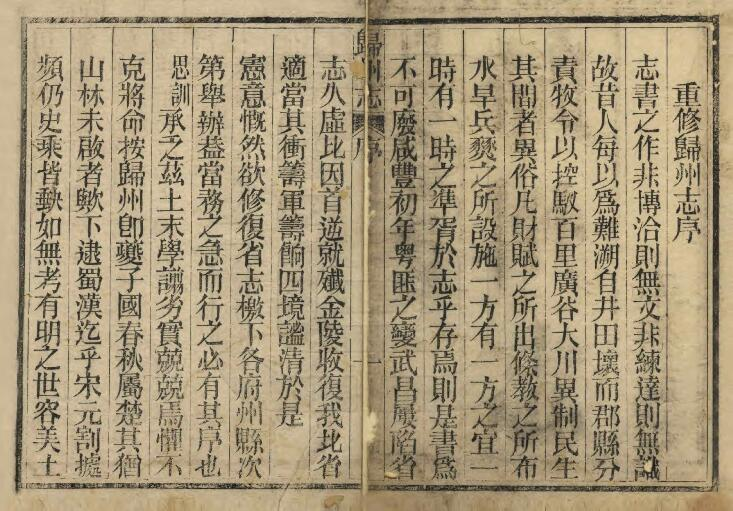 重修歸州志序
志書之作非博洽則無文非練達則無識
故昔人每以爲難溯自井田壞而郡縣分
責牧令以控馭百里廣谷大川異制民生
其間者異俗凡財賦之所出條教之所布
水旱兵燹之所設施一方有一方之宜一
時有一時之準胥於志乎存焉則是書爲
不可廢咸豐初年粵匪之變武昌屢陷省
歸州志 序 一
志久虛比因首逆就殲金陵收復我北省
適當其衝籌軍籌餉四境謐清於是
憲意慨然欲修復省志檄下各府州縣次
第舉辦葢當務之急而行之必有其序也
思訓承乏茲土末學譾劣實兢兢焉懼不
克將命按歸州卽夔子國春秋屬楚其猶
山林未啟者歟下逮蜀漢迄乎宋元割據
頻仍史乘皆缺如無考有明之世容美土